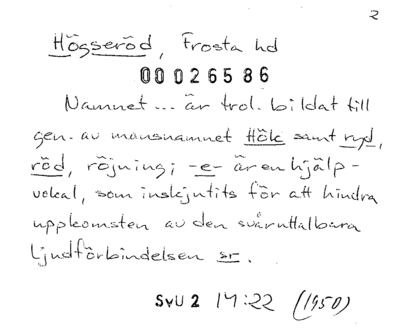 2
Högseröd, Frosta hd
00026586
Namnet... är trol. bildat till
gen. av mansnamnet Hök samt ryd,
röd, röjning; -e- är en hjälp-
vokal, som inskjutits för att hindra
uppkomsten av den svåruttalbara
ljudförbindelsen sr.
SvU 2 14:22 (1950)